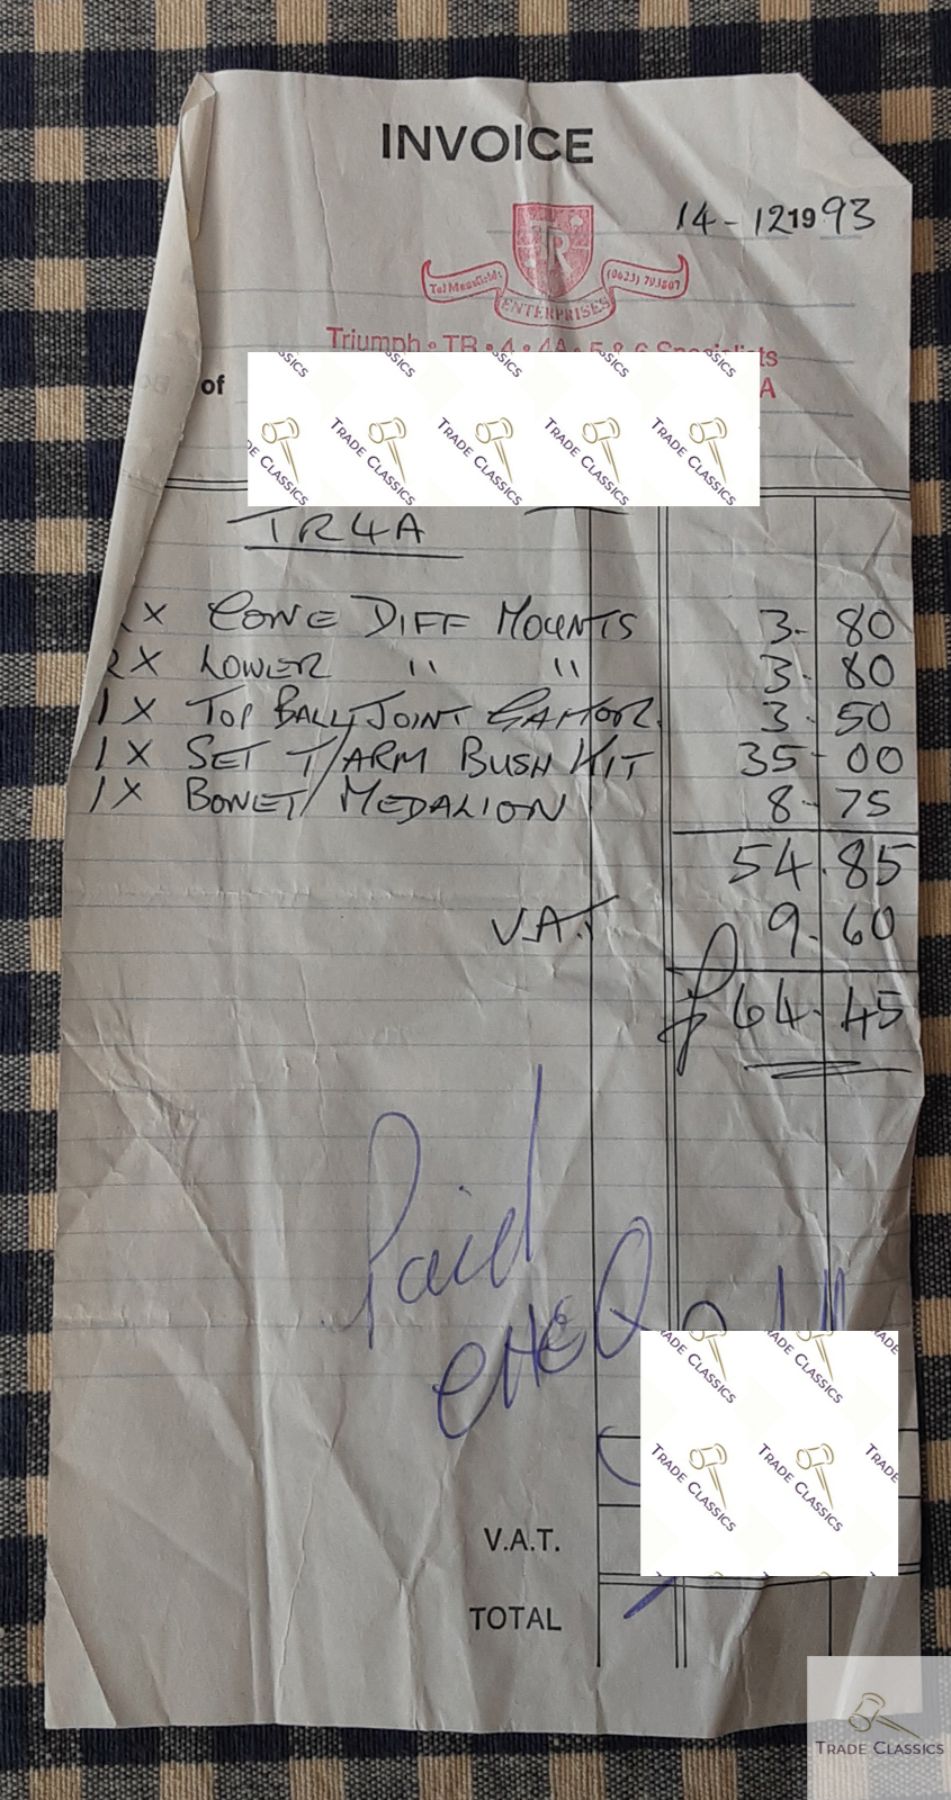 INVOICE
14-12 1993
TR
Tel Mansfield: (0623) 793807
ENTERPRISES
Triumph • TR • 4 • 4A • 5 & 6 Specialists
of A
TRADE CLASSICS TRADE CLASSICS TRADE CLASSICS TRADE CLASSICS
TR4A
X CONE DIFF MOUNTS 3-80
2X LOWER " " 3-80
1X TOP BALL JOINT GAITOR. 3-50
1X SET T/ARM BUSH KIT 35-00
1X BONET/MEDALION 8-75
54.85
V.A.T 9-60
£64-45
Paid
CHEQ
TRADE CLASSICS TRADE CLASSICS
V.A.T.
TOTAL
TRADE CLASSICS